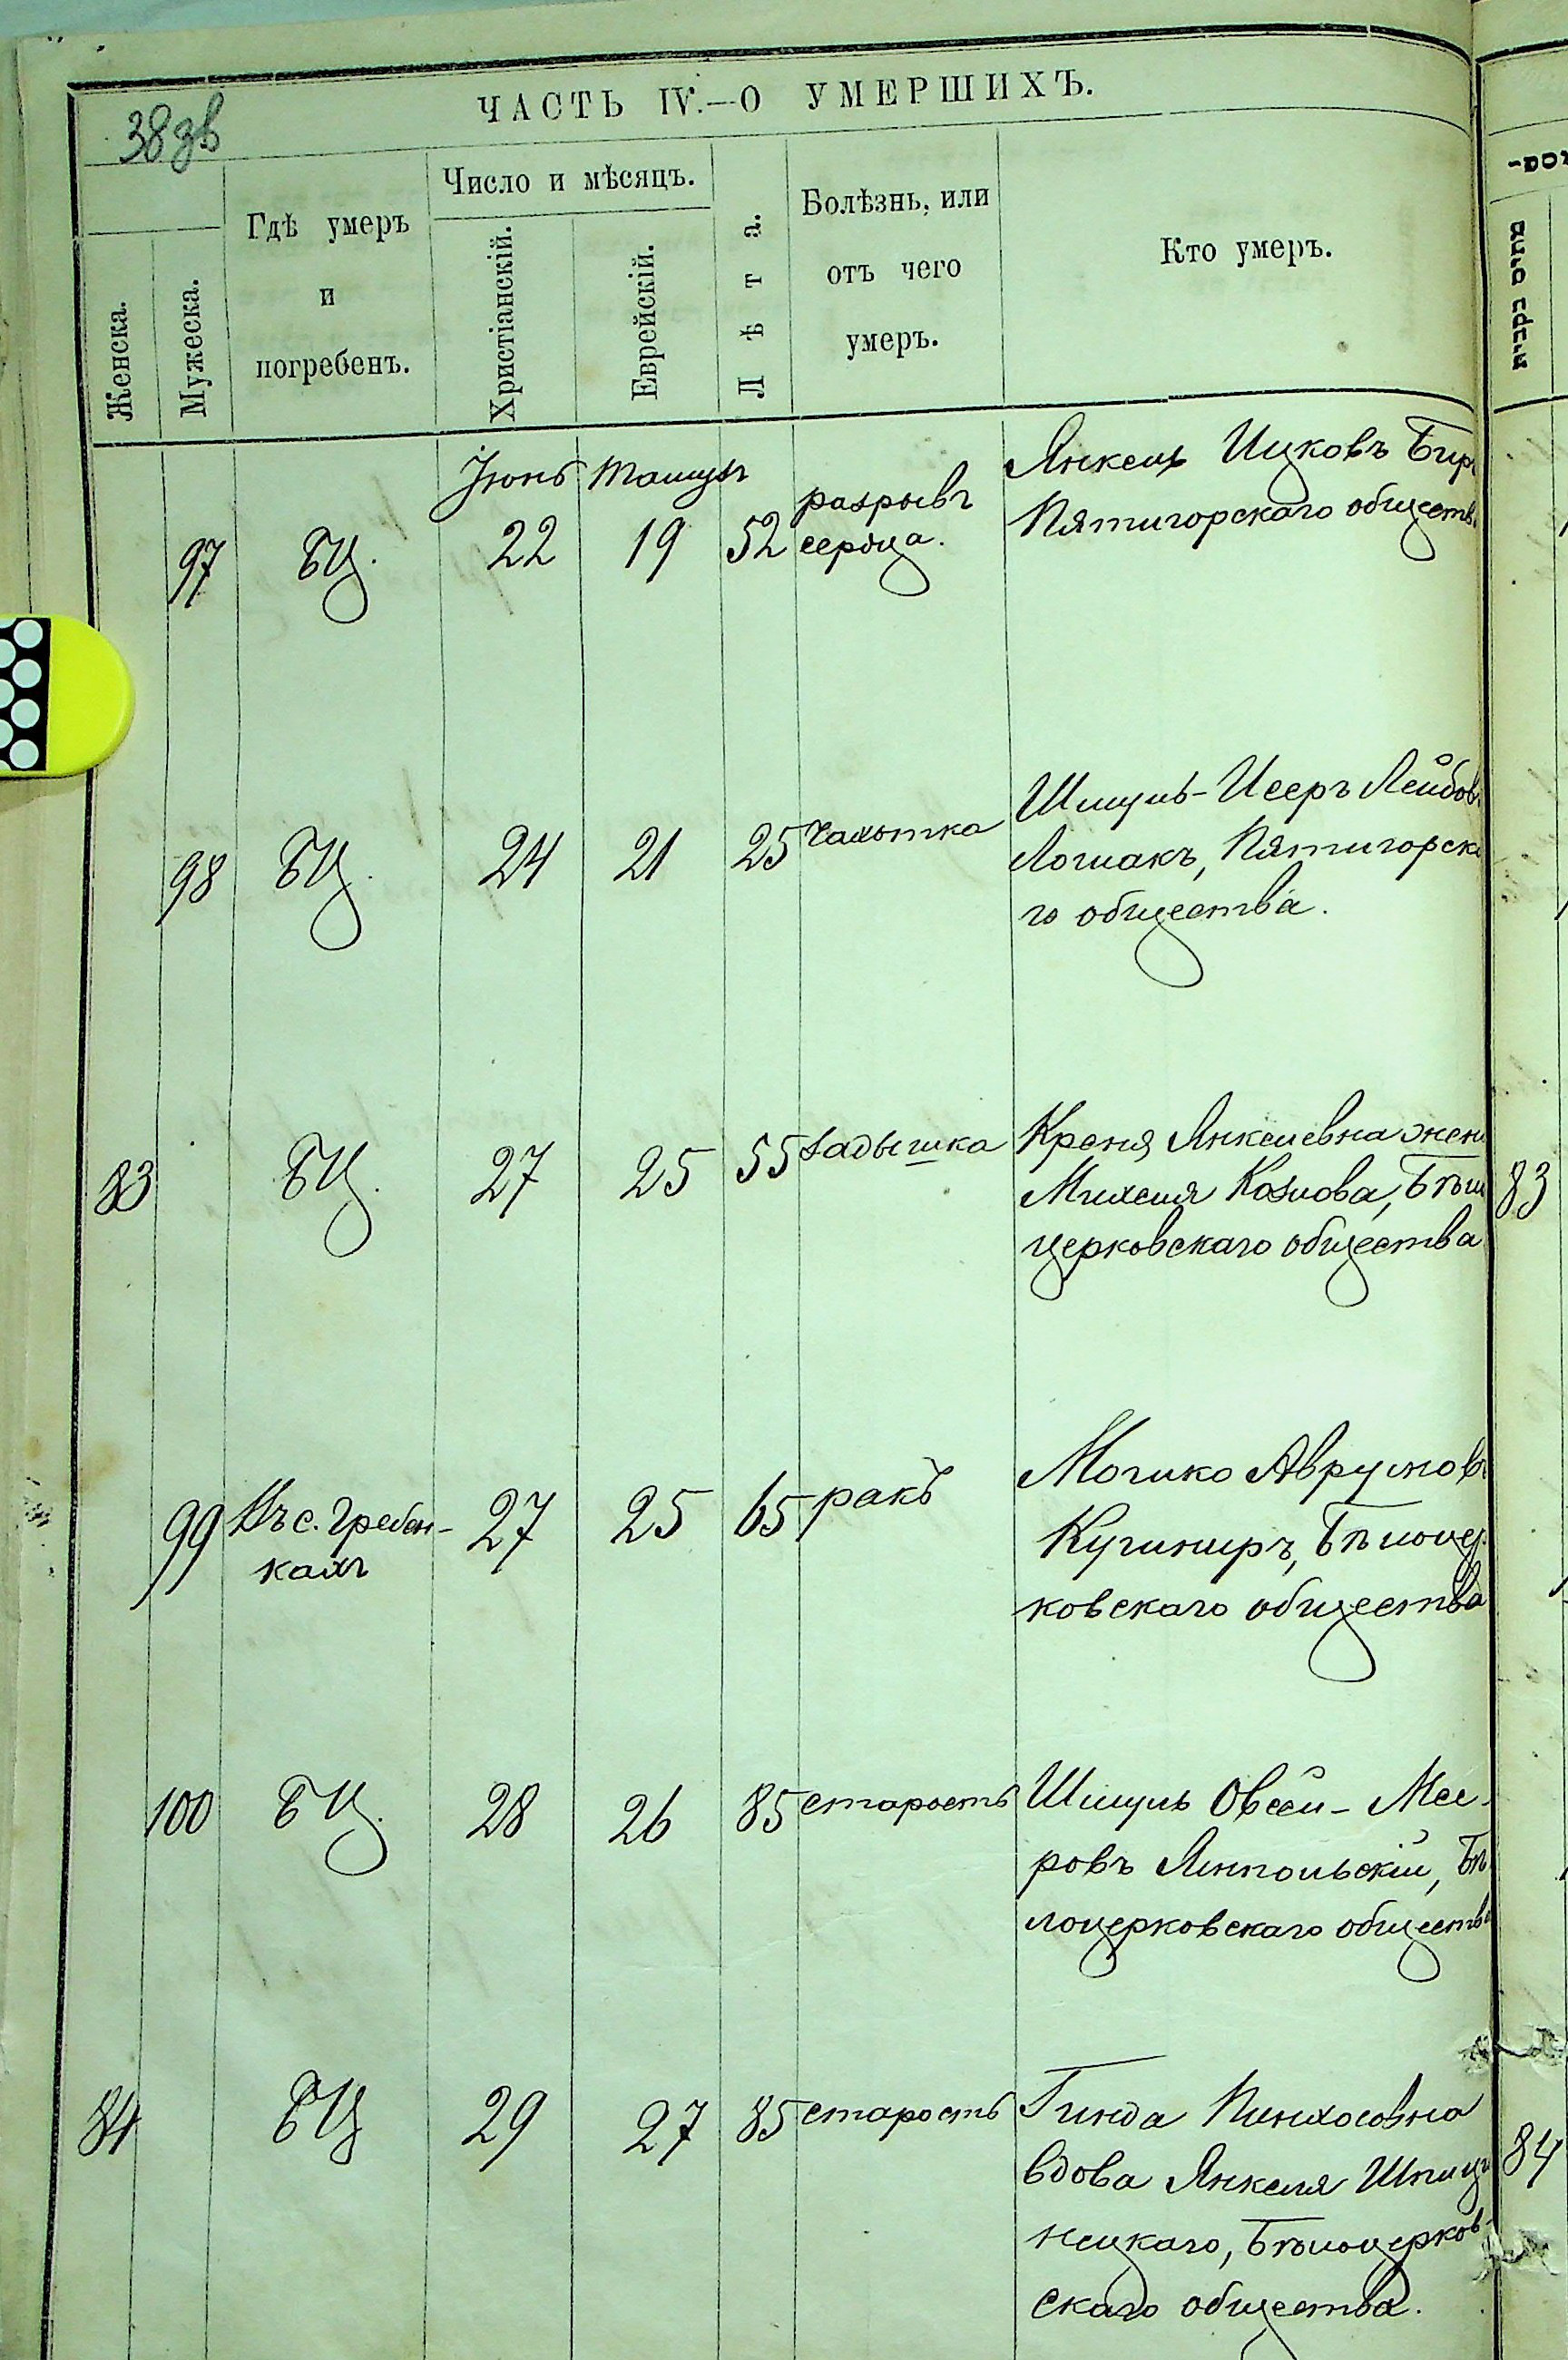 38зв
ЧАСТЬ IV.—О УМЕРШИХЪ.
Женска.
Мужеска.
Гдѣ умеръ
и
погребенъ.
Число и мѣсяцъ.
Христіанскій.
Еврейскій.
Лѣта.
Болѣзнь, или
отъ чего
умеръ.
Кто умеръ.
Іюнь Тамузъ
97 БЦ. 22 19 52
разрывъ
сердца.
Янкель Ицковъ
Пятигорскаго обществ
98 БЦ. 24 21 25 Чахотка
Шмуль-Исеръ Лейбов
Лошакъ, Пятигорска
го общества.
83 БЦ. 27 25 55 Задышка
Креня Янкелевна жен
Михеля Козлова, Бѣл
церковскаго общества
83
99 Въ с. Гребен-
кахъ
27 25 65 ракъ
Мошко Аврумовъ
Кушниръ, Бѣлоцер
ковскаго общества
100 БЦ. 28 26 85 старость
Шмуль Овсей-Мее-
ровъ Ямпольскій, Бѣ
лоцерковскаго обществ
84 БЦ 29 27 85 старость
Гинда Пинхосовна
вдова Янкеля Шпич
нецкаго, Бѣлоцерков-
скаго общества.
84